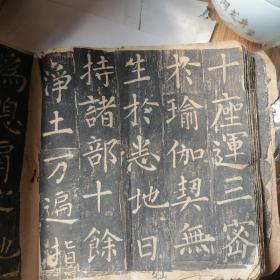 十座運三密
於瑜伽契無
生於悉地日
持諸部十餘
淨土万遍指
為總